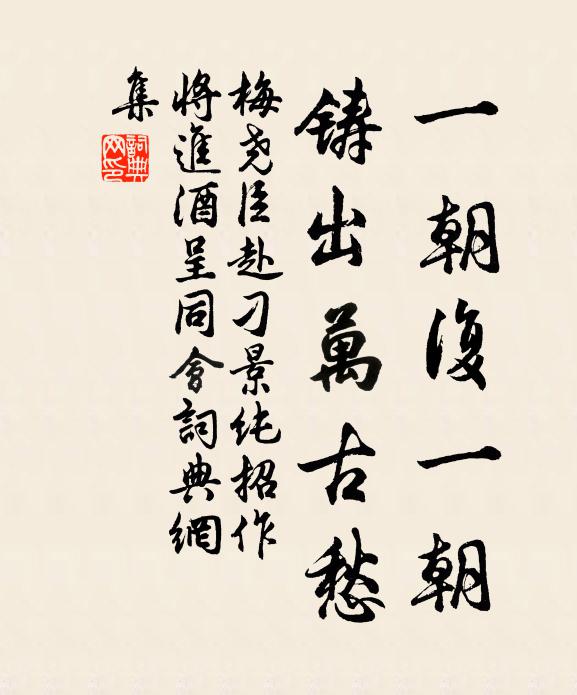 一朝復一朝
鑄出萬古愁
梅堯臣赴刁景純招作
將進酒呈同會詞典網
集
詞典網印